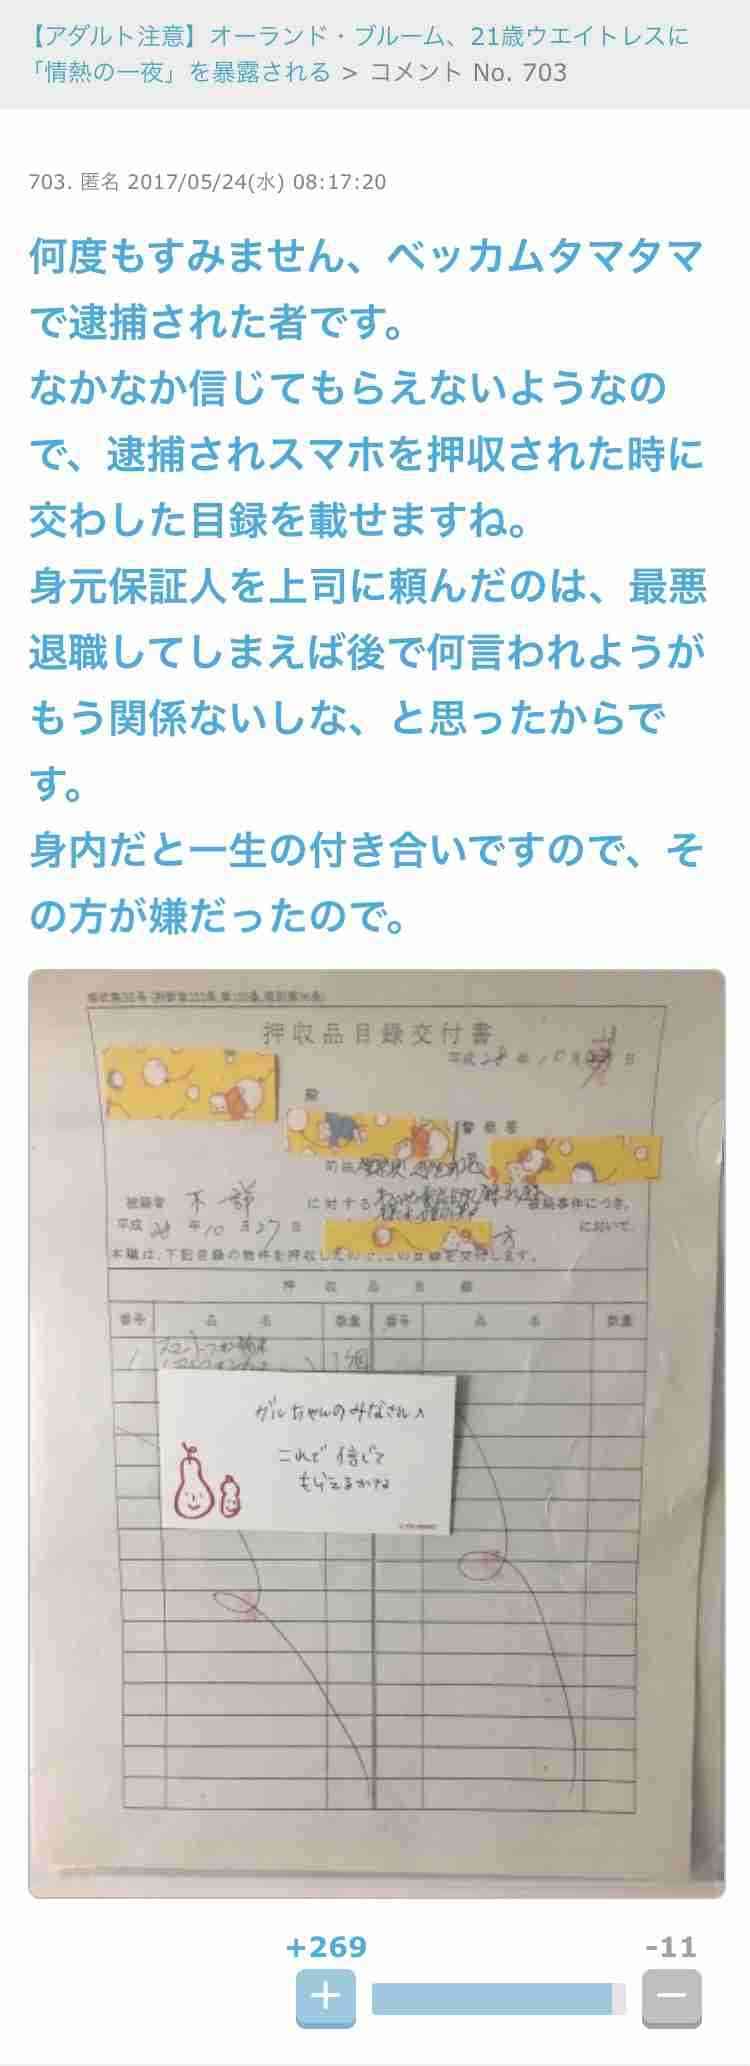 【アダルト注意】オーランド・ブルーム、21歳ウエイトレスに
「情熱の一夜」を暴露される > コメント No. 703
703. 匿名 2017/05/24(水) 08:17:20
何度もすみません、ベッカムタマタマ
で逮捕された者です。
なかなか信じてもらえないようなの
で、逮捕されスマホを押収された時に
交わした目録を載せますね。
身元保証人を上司に頼んだのは、最悪
退職してしまえば後で何言われようが
もう関係ないしな、と思ったからで
す。
身内だと一生の付き合いですので、そ
の方が嫌だったので。
押収品目録交付書
平成28年10月 日
殿
警察署
司法
被疑者 不詳 に対する 被疑事件につき、
平成28年10月27日 方 において、
本職は、下記目録の物件を押収したので、この目録を交付します。
押収品目録
番号 品名 数量 番号 品名 数量
1 1個
ガルちゃんのみなさんへ
これで信じて
もらえるかな
+269 -11
+ −